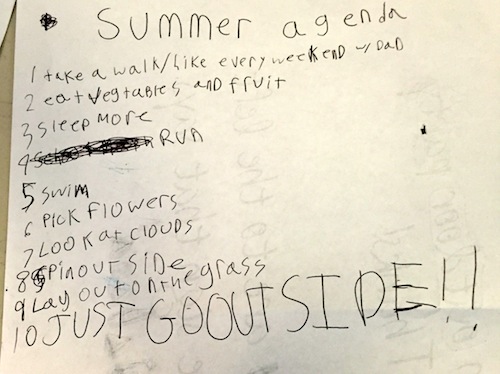 Summer agenda
1 take a walk/hike every weekEND w/ DaD
2 eat vegtables and fruit
3 sleep more
4 RUN
5 swim
6 Pick Flowers
7 LOOK at CLOUDS
8 SPin out SiDe
9 Lay out on the grass
10 JUST GO OUT SIDE!!